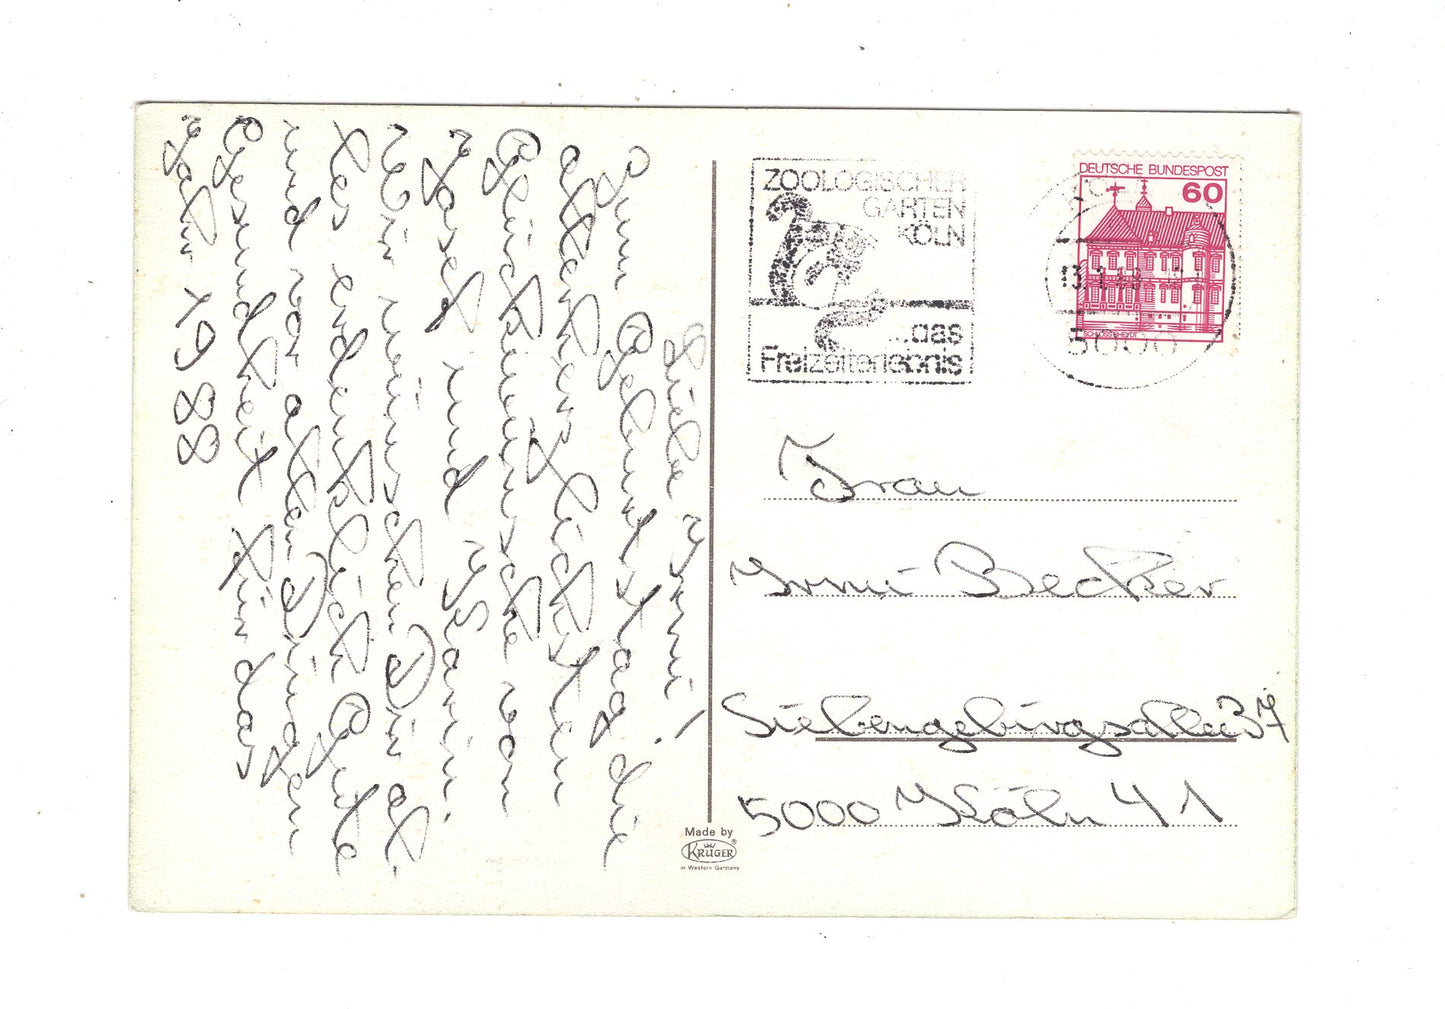 Liebe Irmi!
Zum Geburtstag die
allerherzlichsten
Glückwünsche von
Josef und Marin.
Wir wünschen Dir al-
les erdenklich Gute
und vor allen Dingen
Gesundheit für das
Jahr 1988
ZOOLOGISCHER
GARTEN
KÖLN
...das
Freizeiterlebnis
DEUTSCHE BUNDESPOST
60
SCHLOSS RHEYDT
5000
Frau
Irmi Becker
Siebengebirgsallee 37
5000 Köln 41
Made by
KRÜGER®
in Western Germany